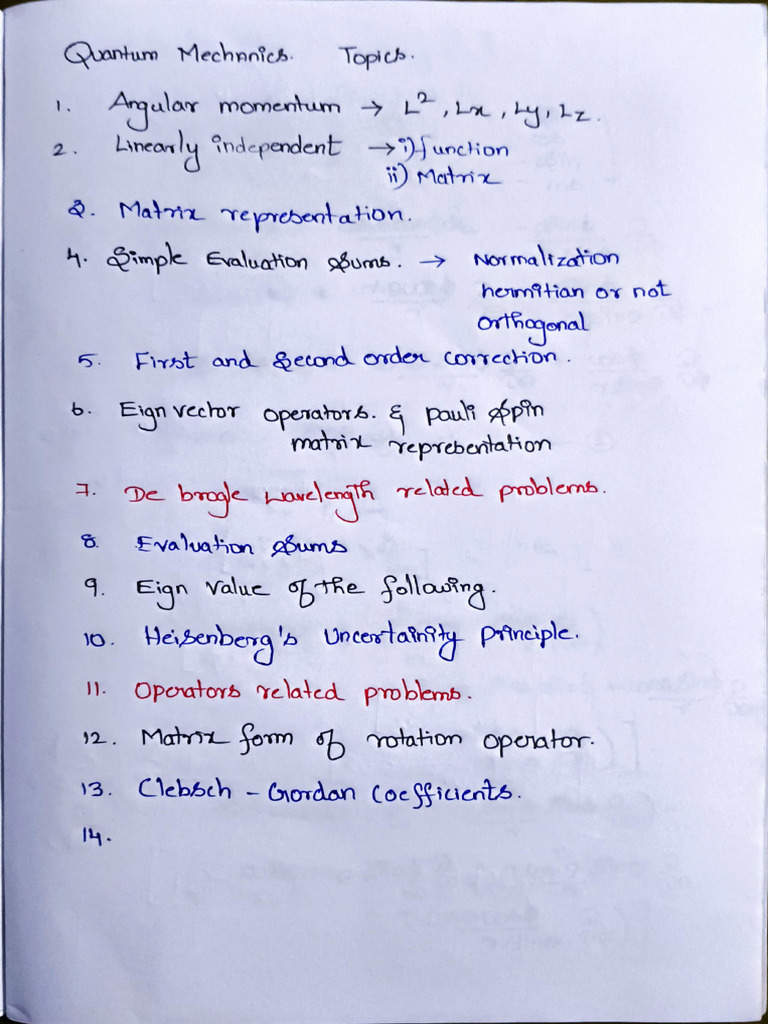 Quantum Mechnnics. Topics.
1. Angular momentum → L², Lx, Ly, Lz.
2. Linearly independent → i) function
ii) Matrix
3. Matrix representation.
4. Simple Evaluation Sums. → Normalization
hermitian or not
orthogonal
5. First and Second order correction.
6. Eign vector operators. & Pauli Spin
matrix representation
7. De brogle wavelength related problems.
8. Evaluation Sums
9. Eign value of the following.
10. Heisenberg's Uncertainity principle.
11. Operators related problems.
12. Matrix form of rotation operator.
13. Clebsch - Gordan Coefficients.
14.